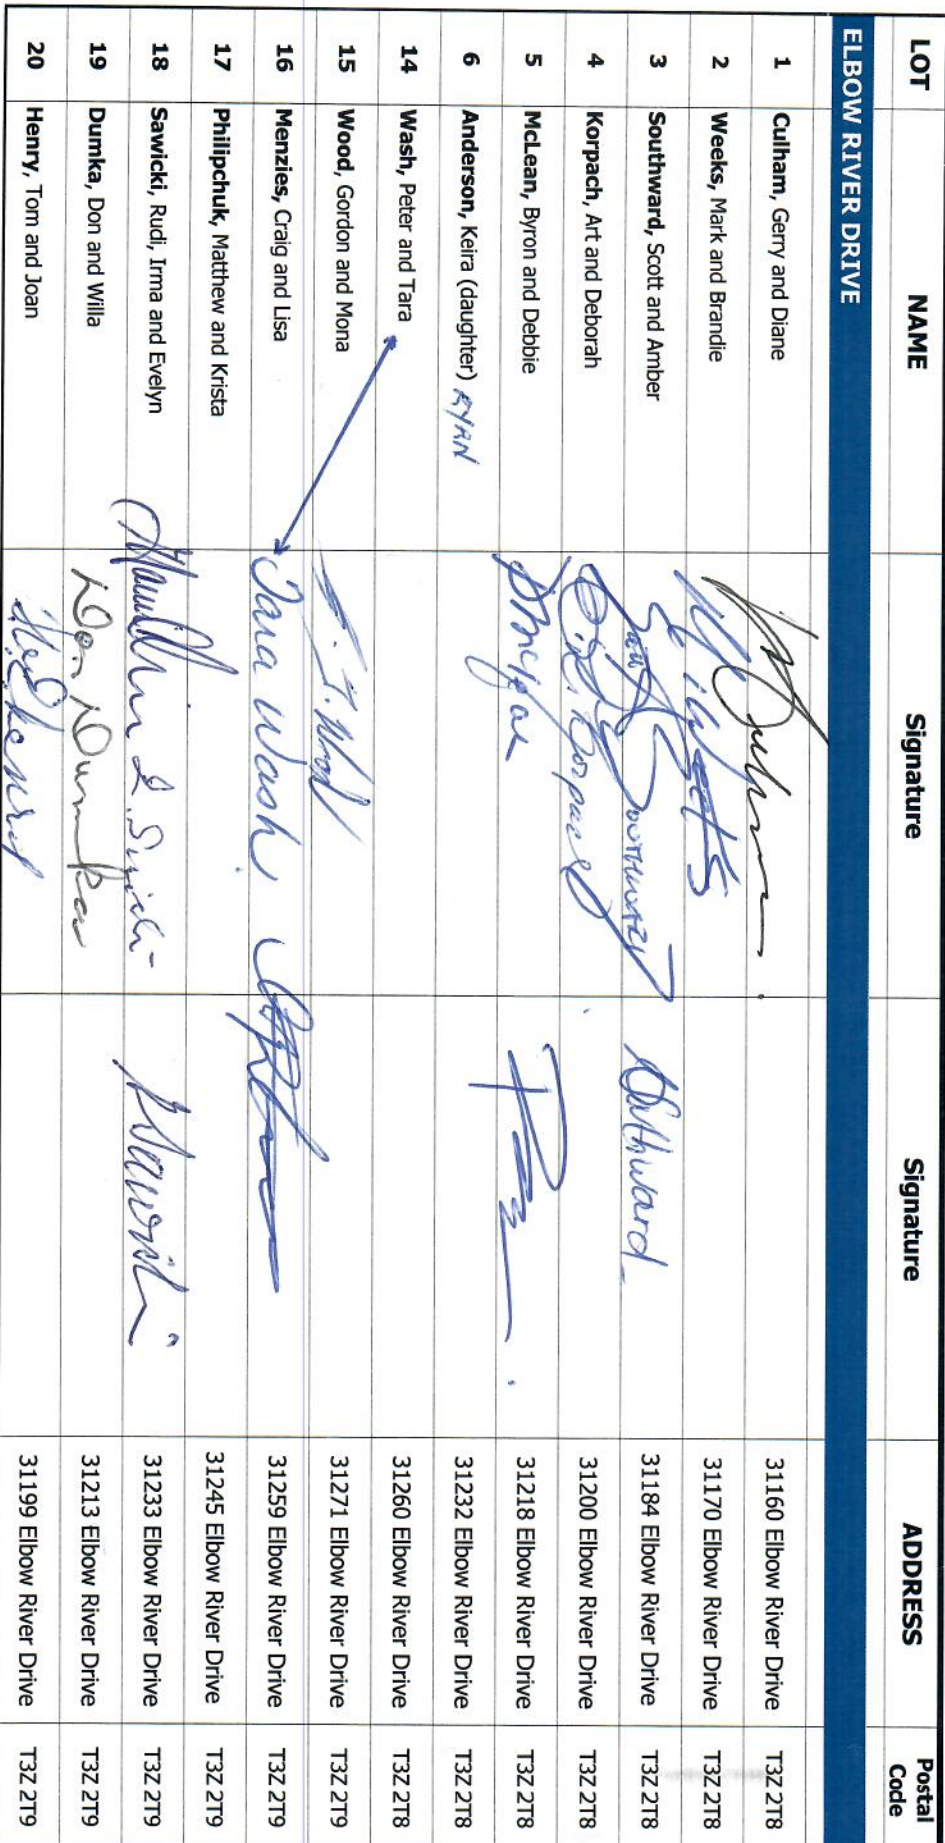 LOT NAME Signature Signature ADDRESS Postal Code
ELBOW RIVER DRIVE
1 Culham, Gerry and Diane Culham 31160 Elbow River Drive T3Z 2T8
2 Weeks, Mark and Brandie Weeks 31170 Elbow River Drive T3Z 2T8
3 Southward, Scott and Amber Scott Southward Southward 31184 Elbow River Drive T3Z 2T8
4 Korpach, Art and Deborah Korpach 31200 Elbow River Drive T3Z 2T8
5 McLean, Byron and Debbie 31218 Elbow River Drive T3Z 2T8
6 Anderson, Keira (daughter) RYAN 31232 Elbow River Drive T3Z 2T8
14 Wash, Peter and Tara 31260 Elbow River Drive T3Z 2T9
15 Wood, Gordon and Mona Wood 31271 Elbow River Drive T3Z 2T9
16 Menzies, Craig and Lisa Tara Wash 31259 Elbow River Drive T3Z 2T9
17 Philipchuk, Matthew and Krista 31245 Elbow River Drive T3Z 2T9
18 Sawicki, Rudi, Irma and Evelyn Sawicki 31233 Elbow River Drive T3Z 2T9
19 Dumka, Don and Willa Don Dumka 31213 Elbow River Drive T3Z 2T9
20 Henry, Tom and Joan Henry 31199 Elbow River Drive T3Z 2T9